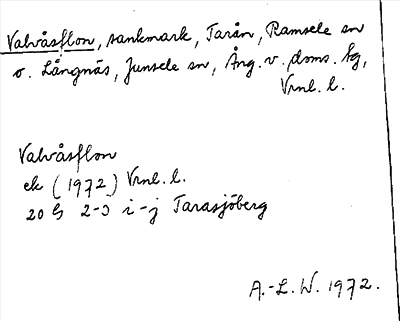 Valvåsflon, sankmark, Tarån, Ramsele sn
o. Långnäs, Junsele sn, Ång. v. doms. fg,
Vrnl. l.
Valvåsflon
ek (1972) Vrnl. l.
20 G 2-3 i-j Tarasjöberg
A.-L. W. 1972.